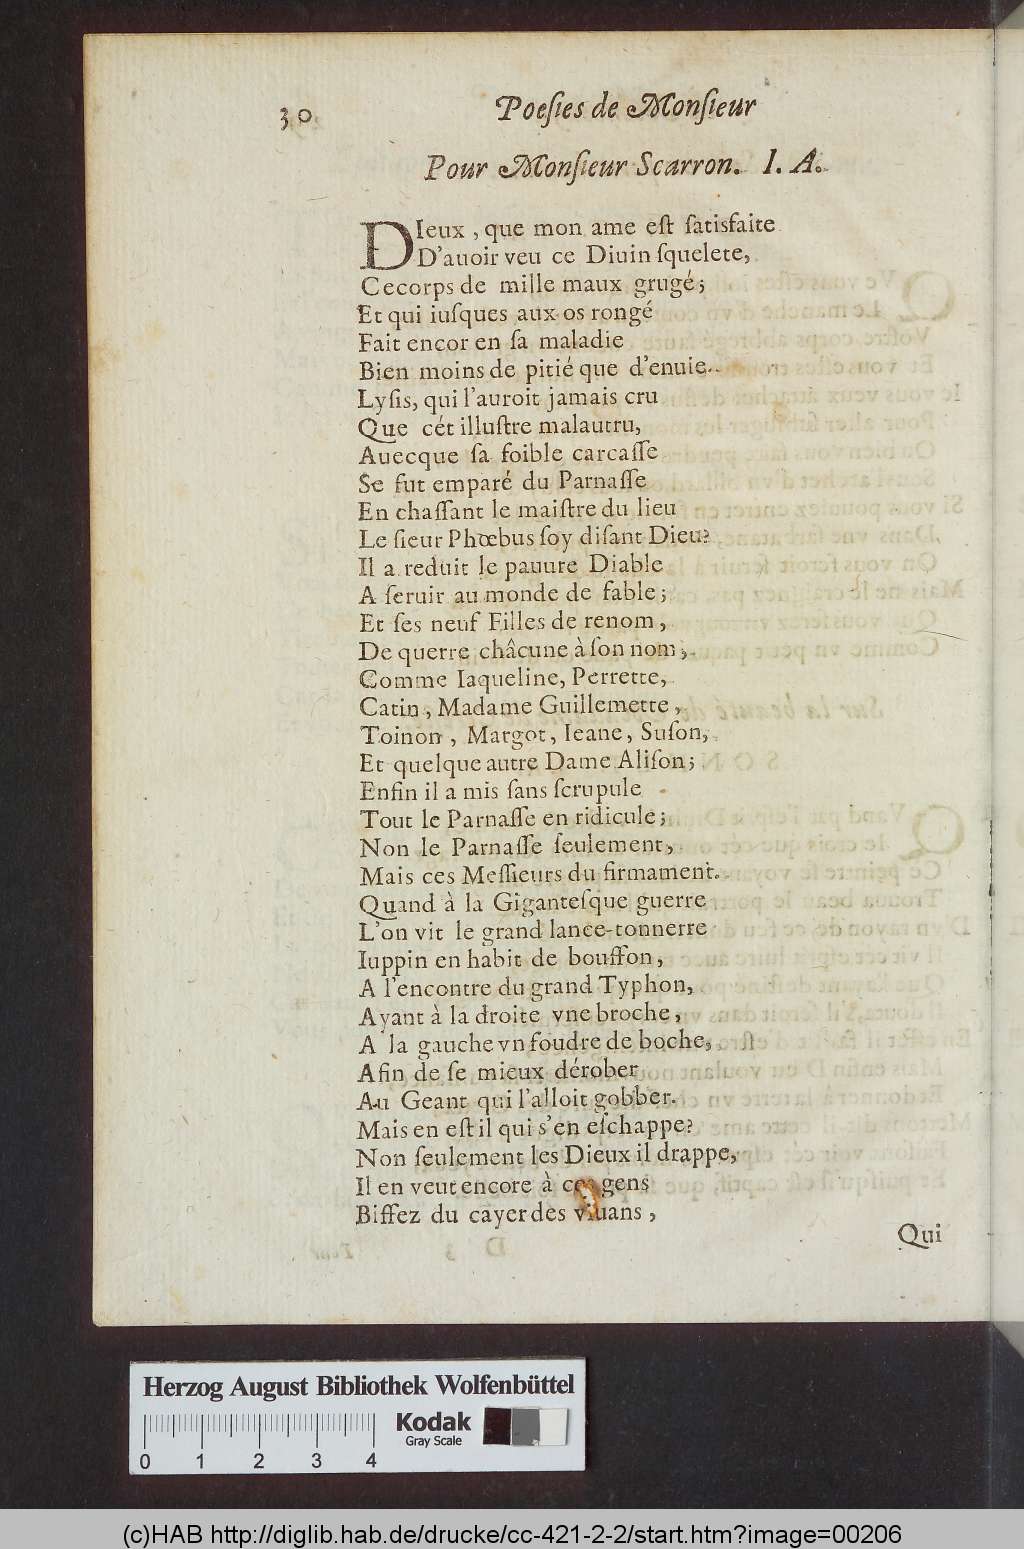 30 Poeſies de Monſieur
Pour Monſieur Scarron. I. A.
DIeux, que mon ame eſt ſatisfaite
D'auoir veu ce Diuin ſquelete,
Cecorps de mille maux grugé;
Et qui iuſques aux os rongé
Fait encor en ſa maladie
Bien moins de pitié que d'enuie.
Lyſis, qui l'auroit jamais cru
Que cét illuſtre malautru,
Auecque ſa foible carcaſſe
Se fut emparé du Parnaſſe
En chaſſant le maiſtre du lieu
Le ſieur Phœbus ſoy diſant Dieu?
Il a reduit le pauure Diable
A ſeruir au monde de fable;
Et ſes neuf Filles de renom,
De querre châcune à ſon nom;
Comme Iaqueline, Perrette,
Catin, Madame Guillemette,
Toinon, Margot, Ieane, Suſon,
Et quelque autre Dame Aliſon;
Enfin il a mis ſans ſcrupule
Tout le Parnaſſe en ridicule;
Non le Parnaſſe ſeulement,
Mais ces Meſſieurs du firmament.
Quand à la Giganteſque guerre
L'on vit le grand lance-tonnerre
Iuppin en habit de bouffon,
A l'encontre du grand Typhon,
Ayant à la droite vne broche,
A la gauche vn foudre de boche,
Afin de ſe mieux dérober
Au Geant qui l'alloit gobber.
Mais en eſt il qui s'en eſchappe?
Non ſeulement les Dieux il drappe,
Il en veut encore à ces gens
Biffez du cayer des viuans,
Qui
Herzog August Bibliothek Wolfenbüttel
Kodak
Gray Scale
0 1 2 3 4
(c)HAB http://diglib.hab.de/drucke/cc-421-2-2/start.htm?image=00206